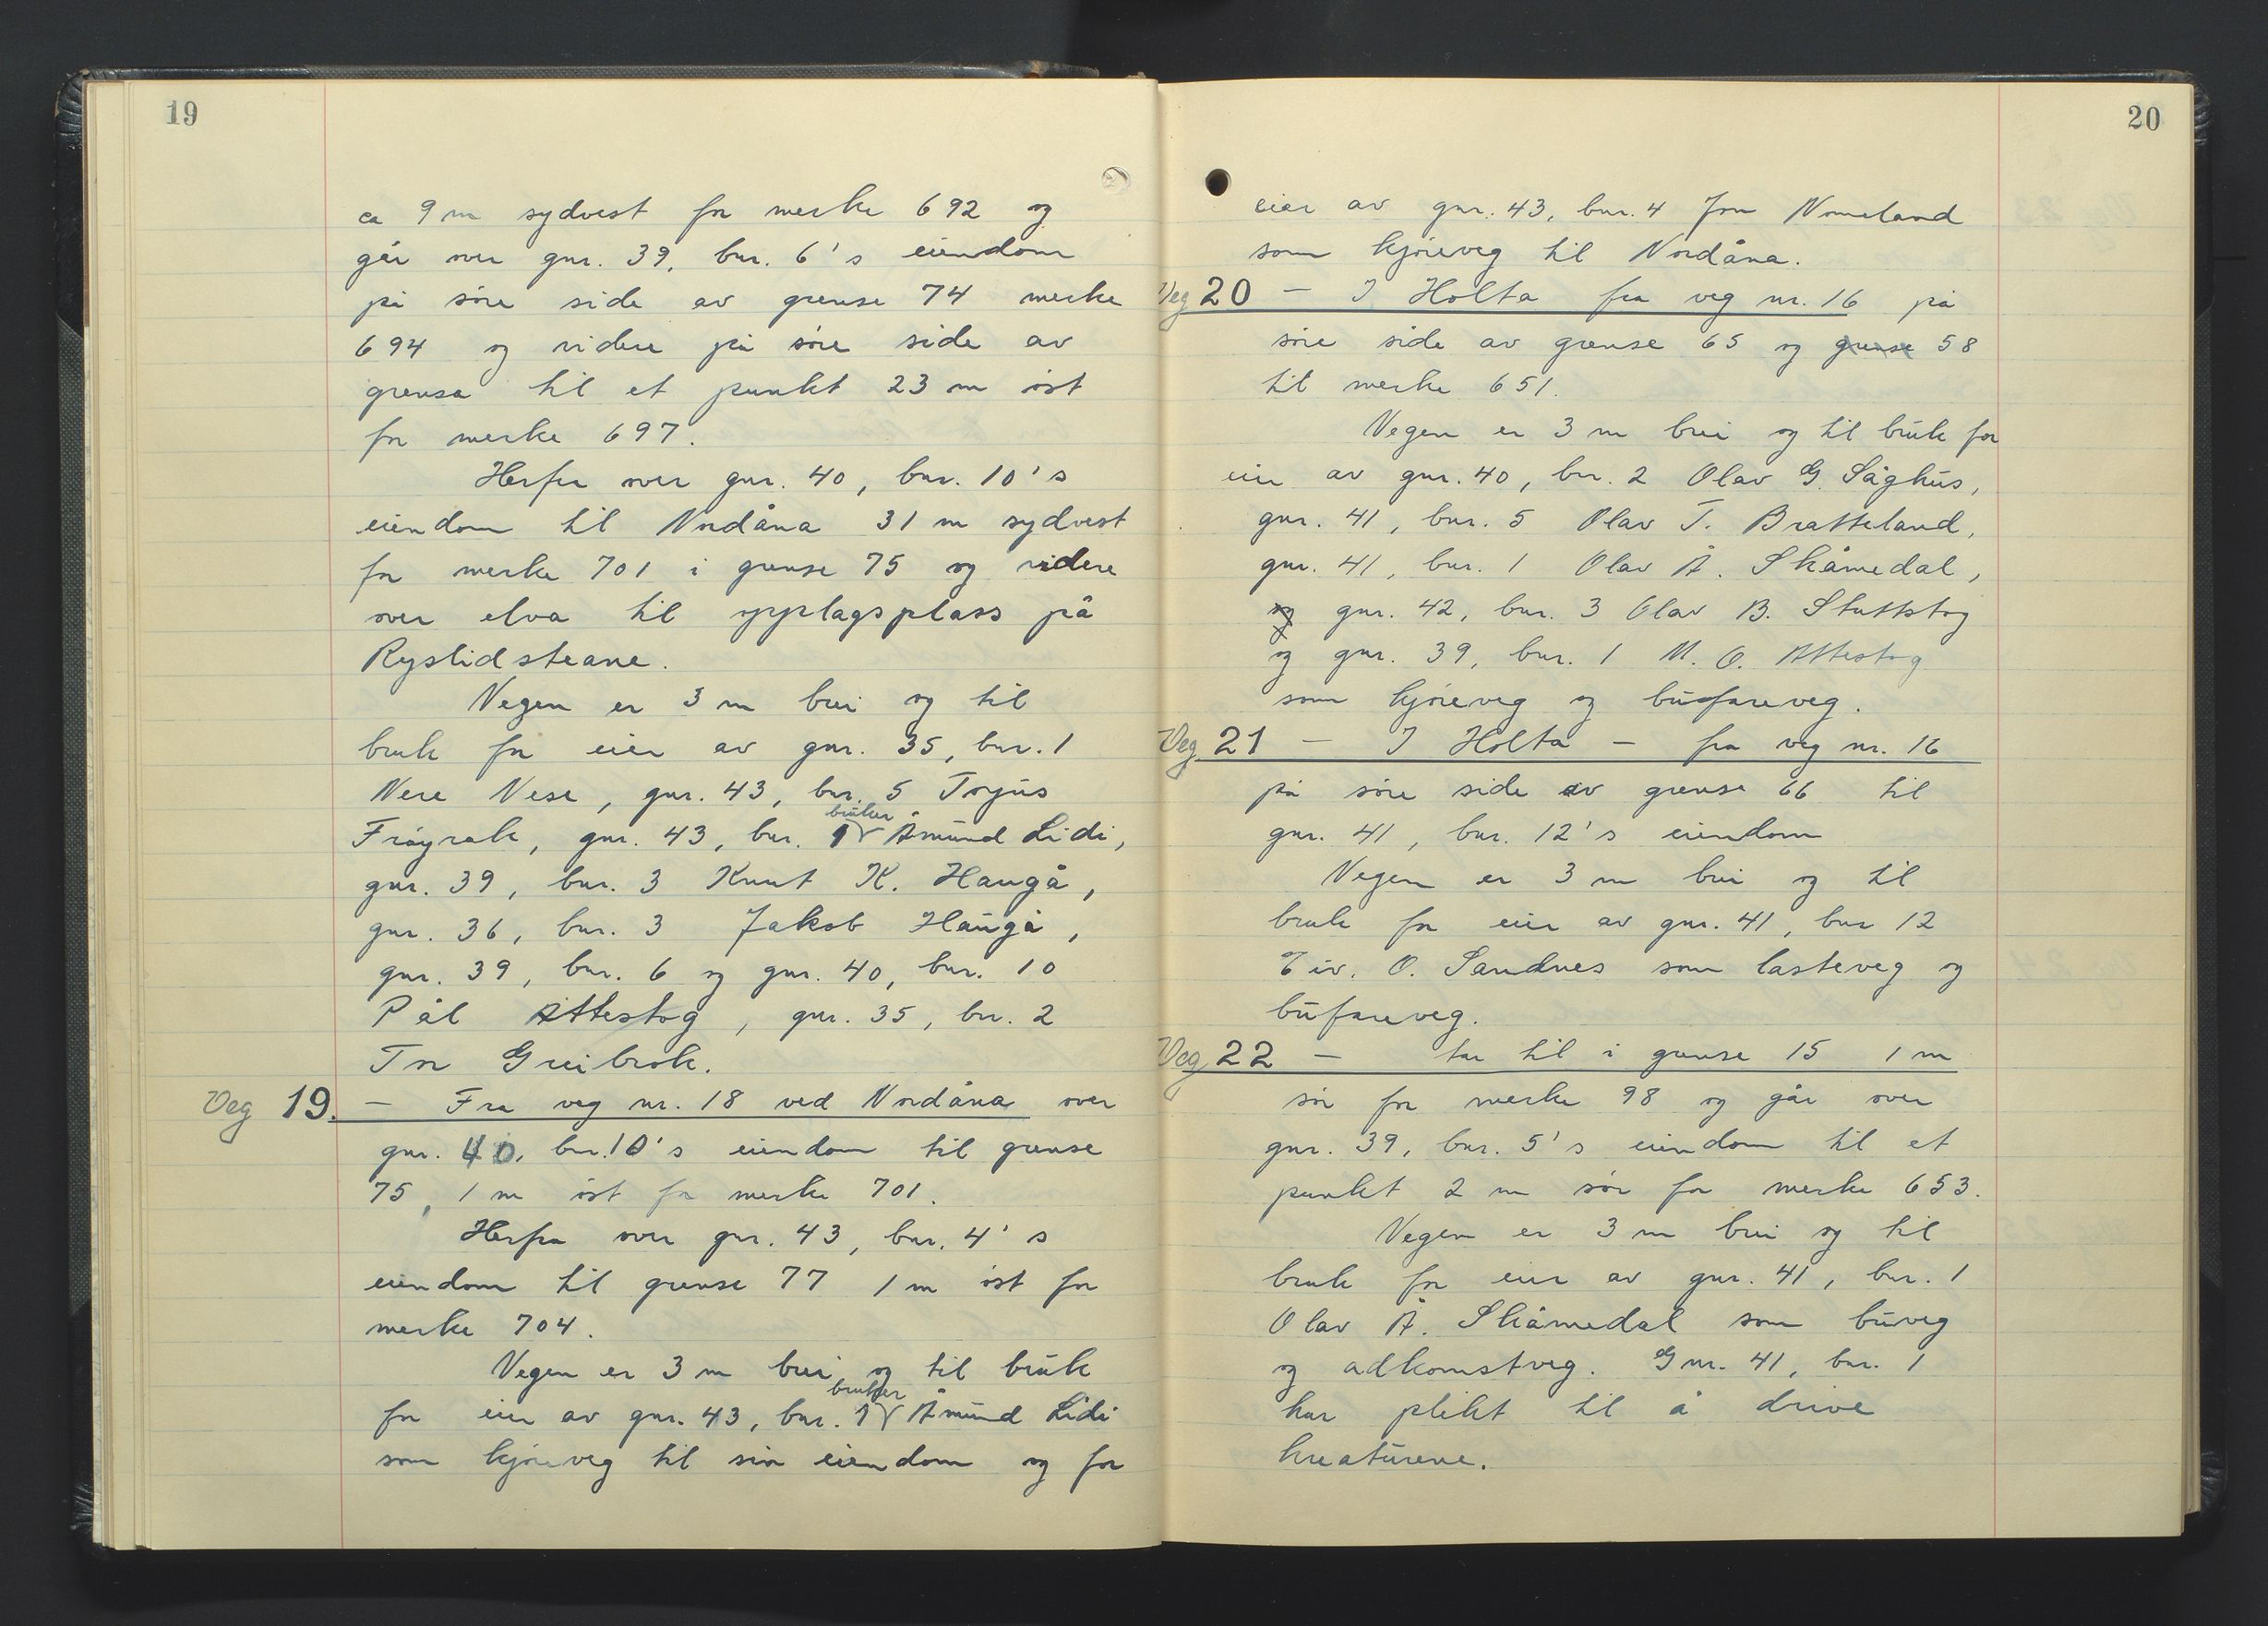 19
ca 9 m sydvest for merke 692 og
går over gnr. 39, bnr. 6's eiendom
på søre side av grense 74 merke
694 og videre på søre side av
grensa til et punkt 23 m øst
for merke 697.
Herfra over gnr. 40, bnr. 10's
eiendom til Nordåna 31 m sydvest
for merke 701 i grense 75 og videre
over elva til opplagsplass på
Ryslidsteane.
Vegen er 3 m brei og til
bruk for eier av gnr. 35, bnr. 1
Nere Nese, gnr. 43, bnr. 5 Torjus
bruker
Frøyrak, gnr. 43, bnr. 1 Åmund Lidi,
gnr. 39, bnr. 3 Knut K. Haugå,
gnr. 36, bnr. 3 Jakob Haugå,
gnr. 39, bnr. 6 og gnr. 40, bnr. 10
Pål Attestog, gnr. 35, bnr. 2
Tor Greibrok.
Veg 19. - Fra veg nr. 18 ved Nordåna over
gnr. 40, bnr. 10's eiendom til grense
75, 1 m øst for merke 701.
Herfra over gnr. 43, bnr. 4's
eiendom til grense 77 1 m øst for
merke 704.
Vegen er 3 m brei og til bruk
bruker
for eier av gnr. 43, bnr. 1 Åmund Lidi
som kjøreveg til sin eiendom og for
20
eier av gnr. 43, bnr. 4 Jon Nomeland
som kjøreveg til Nordåna.
Veg 20 - I Holta fra veg nr. 16 på
søre side av grense 65 og grense 58
til merke 651.
Vegen er 3 m brei og til bruk for
eier av gnr. 40, bnr. 2 Olav G. Såghus,
gnr. 41, bnr. 5 Olav T. Bratteland,
gnr. 41, bnr. 1 Olav Å. Skåmedal,
og gnr. 42, bnr. 3 Olav B. Stuttstog
og gnr. 39, bnr. 1 M. O. Attestog
som kjøreveg og bufareveg.
Veg 21 - I Holta - fra veg nr. 16
på søre side av grense 66 til
gnr. 41, bnr. 12's eiendom
Vegen er 3 m brei og til
bruk for eier av gnr. 41, bnr 12
Eiv. O. Sandnes som lasteveg og
bufareveg.
Veg 22 - tar til i grense 15 1 m
sør for merke 98 og går over
gnr. 39, bnr. 5's eiendom til et
punkt 2 m sør for merke 653.
Vegen er 3 m brei og til
bruk for eier av gnr. 41, bnr. 1
Olav Å. Skåmedal som buveg
og adkomstveg. Gnr. 41, bnr. 1
har plikt til å drive
kreaturene.